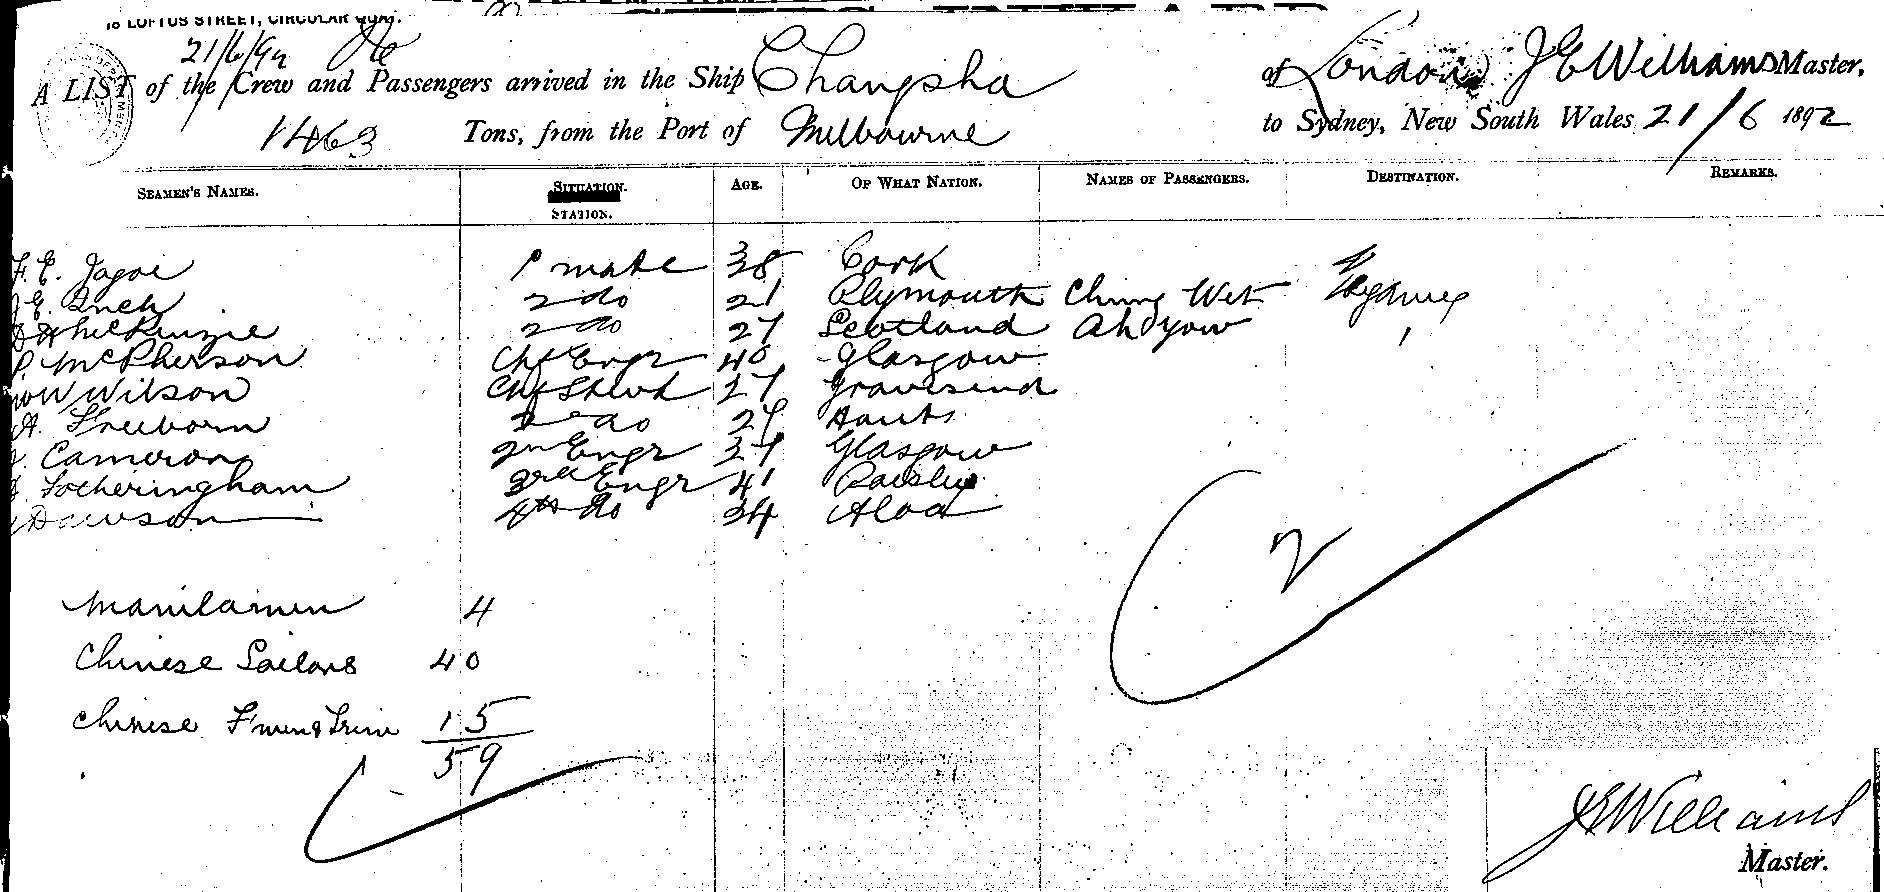 18 LOFTUS STREET, CIRCULAR QUAY.
21/6/92
A LIST of the Crew and Passengers arrived in the Ship Changsha of London J E Williams Master,
1463 Tons, from the Port of Melbourne to Sydney, New South Wales 21/6 1892
SEAMEN'S NAMES. SITUATION. STATION. AGE. OF WHAT NATION. NAMES OF PASSENGERS. DESTINATION. REMARKS.
F. E. Jagoe 1 mate 38 Cork
J E. Inch 2 do 21 Plymouth Chung Wet Sydney
McKenzie 2 do 27 Scotland Ah Yow
P. McPherson Chf Engr 40 Glasgow
W Wilson Chf Stewd 27 Gravesend
A. Freeborn 2 do 27 Hants
J. Cameron 2n Engr 37 Glasgow
Fotheringham 3rd Engr 41 Paisley
Dawson 4th do 34 Aloa
2
Manilamen 4
Chinese Sailors 40
Chinese F'men & Trim 15
59
J E Williams
Master.